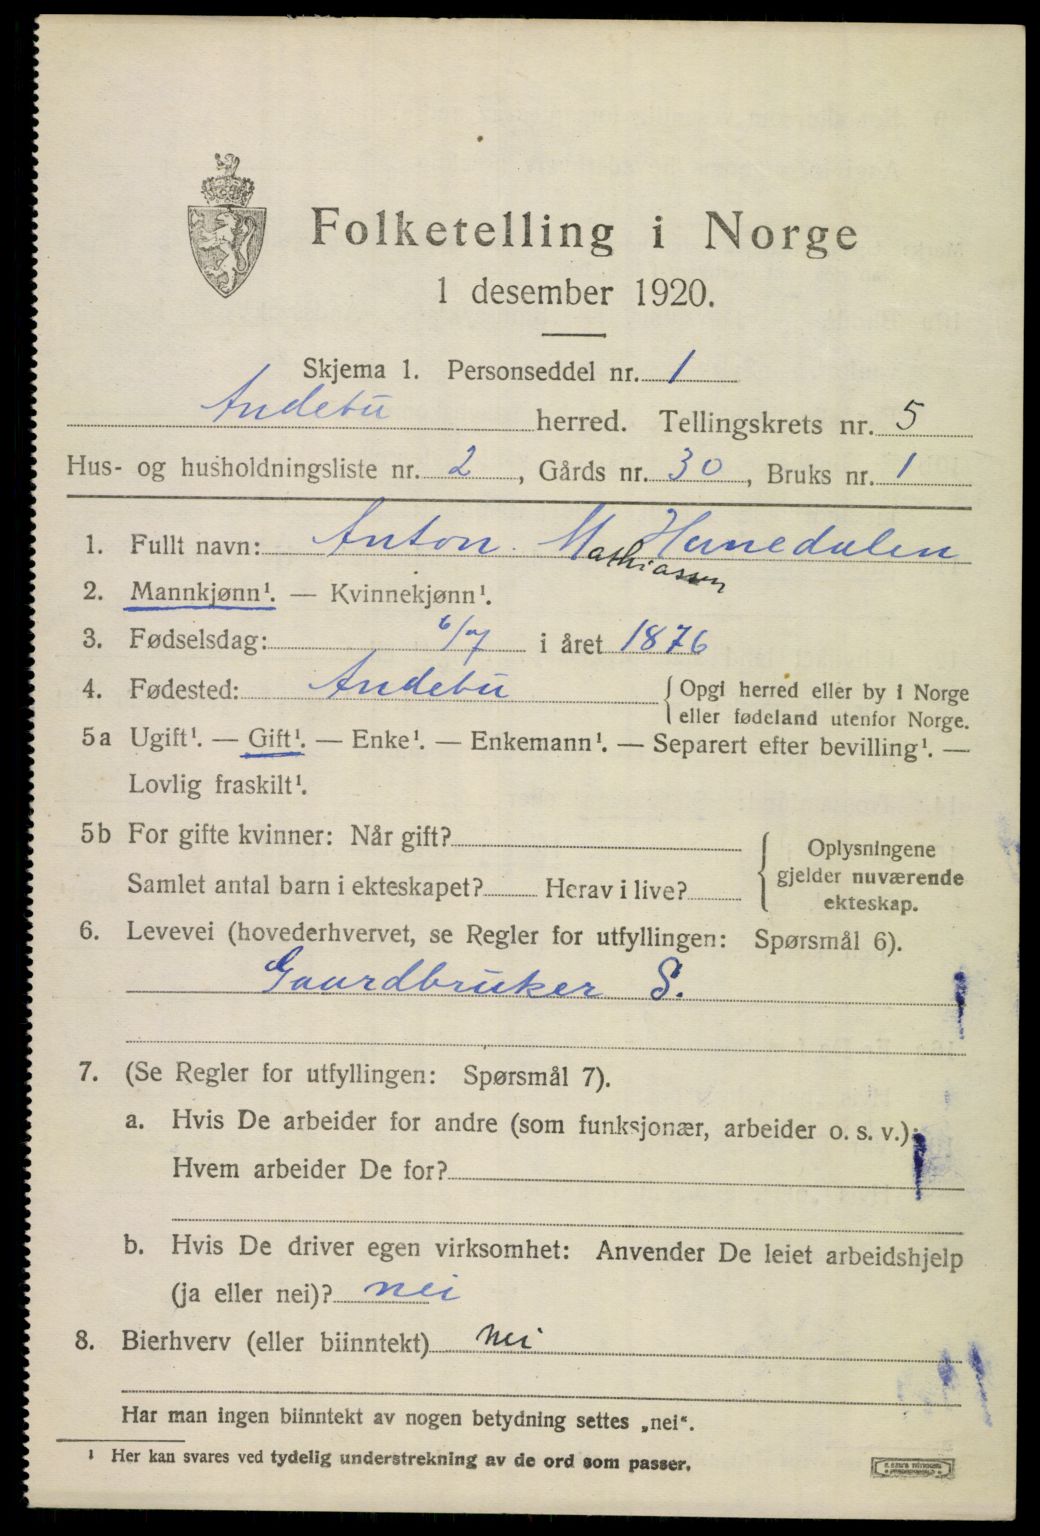 Folketelling i Norge
1 desember 1920.
Skjema 1. Personseddel nr. 1
Andebu herred. Tellingskrets nr. 5
Hus- og husholdningsliste nr. 2, Gårds nr. 30, Bruks nr. 1
1. Fullt navn: Anton. Mathiassen Hunedalen
2. Mannkjønn¹. — Kvinnekjønn¹.
3. Fødselsdag: 6/7 i året 1876
4. Fødested: Andebu { Opgi herred eller by i Norge
eller fødeland utenfor Norge.
5a Ugift¹. — Gift¹. — Enke¹. — Enkemann¹. — Separert efter bevilling¹. —
Lovlig fraskilt¹.
5b For gifte kvinner: Når gift?
Samlet antal barn i ekteskapet? Herav i live?
{ Oplysningene
gjelder nuværende
ekteskap.
6. Levevei (hovederhvervet, se Regler for utfyllingen: Spørsmål 6).
Gaardbruker S.
7. (Se Regler for utfyllingen: Spørsmål 7).
a. Hvis De arbeider for andre (som funksjonær, arbeider o. s. v.):
Hvem arbeider De for?
b. Hvis De driver egen virksomhet: Anvender De leiet arbeidshjelp
(ja eller nei)? nei
8. Bierhverv (eller biinntekt) nei
Har man ingen biinntekt av nogen betydning settes „nei“.
¹ Her kan svares ved tydelig understrekning av de ord som passer.